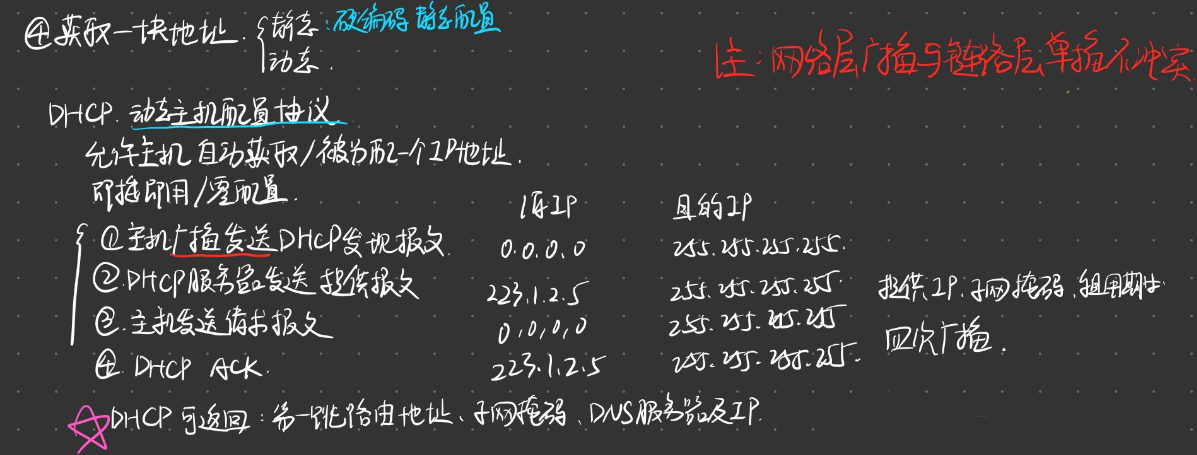 ④获取一块地址. 静态:硬编码 静态配置
动态.
注:网络层广播与链路层单播不冲突
DHCP. 动态主机配置协议
允许主机自动获取/被分配一个IP地址.
即插即用/零配置.
源IP 目的IP
①主机广播发送DHCP发现报文. 0.0.0.0 255.255.255.255.
②DHCP服务器发送提供报文 223.1.2.5 255.255.255.255. 提供IP.子网掩码.租用期等
③.主机发送请求报文 0.0.0.0 255.255.255.255 四次广播.
④. DHCP ACK. 223.1.2.5 255.255.255.255.
DHCP可返回:第一跳路由地址、子网掩码、DNS服务器及IP.